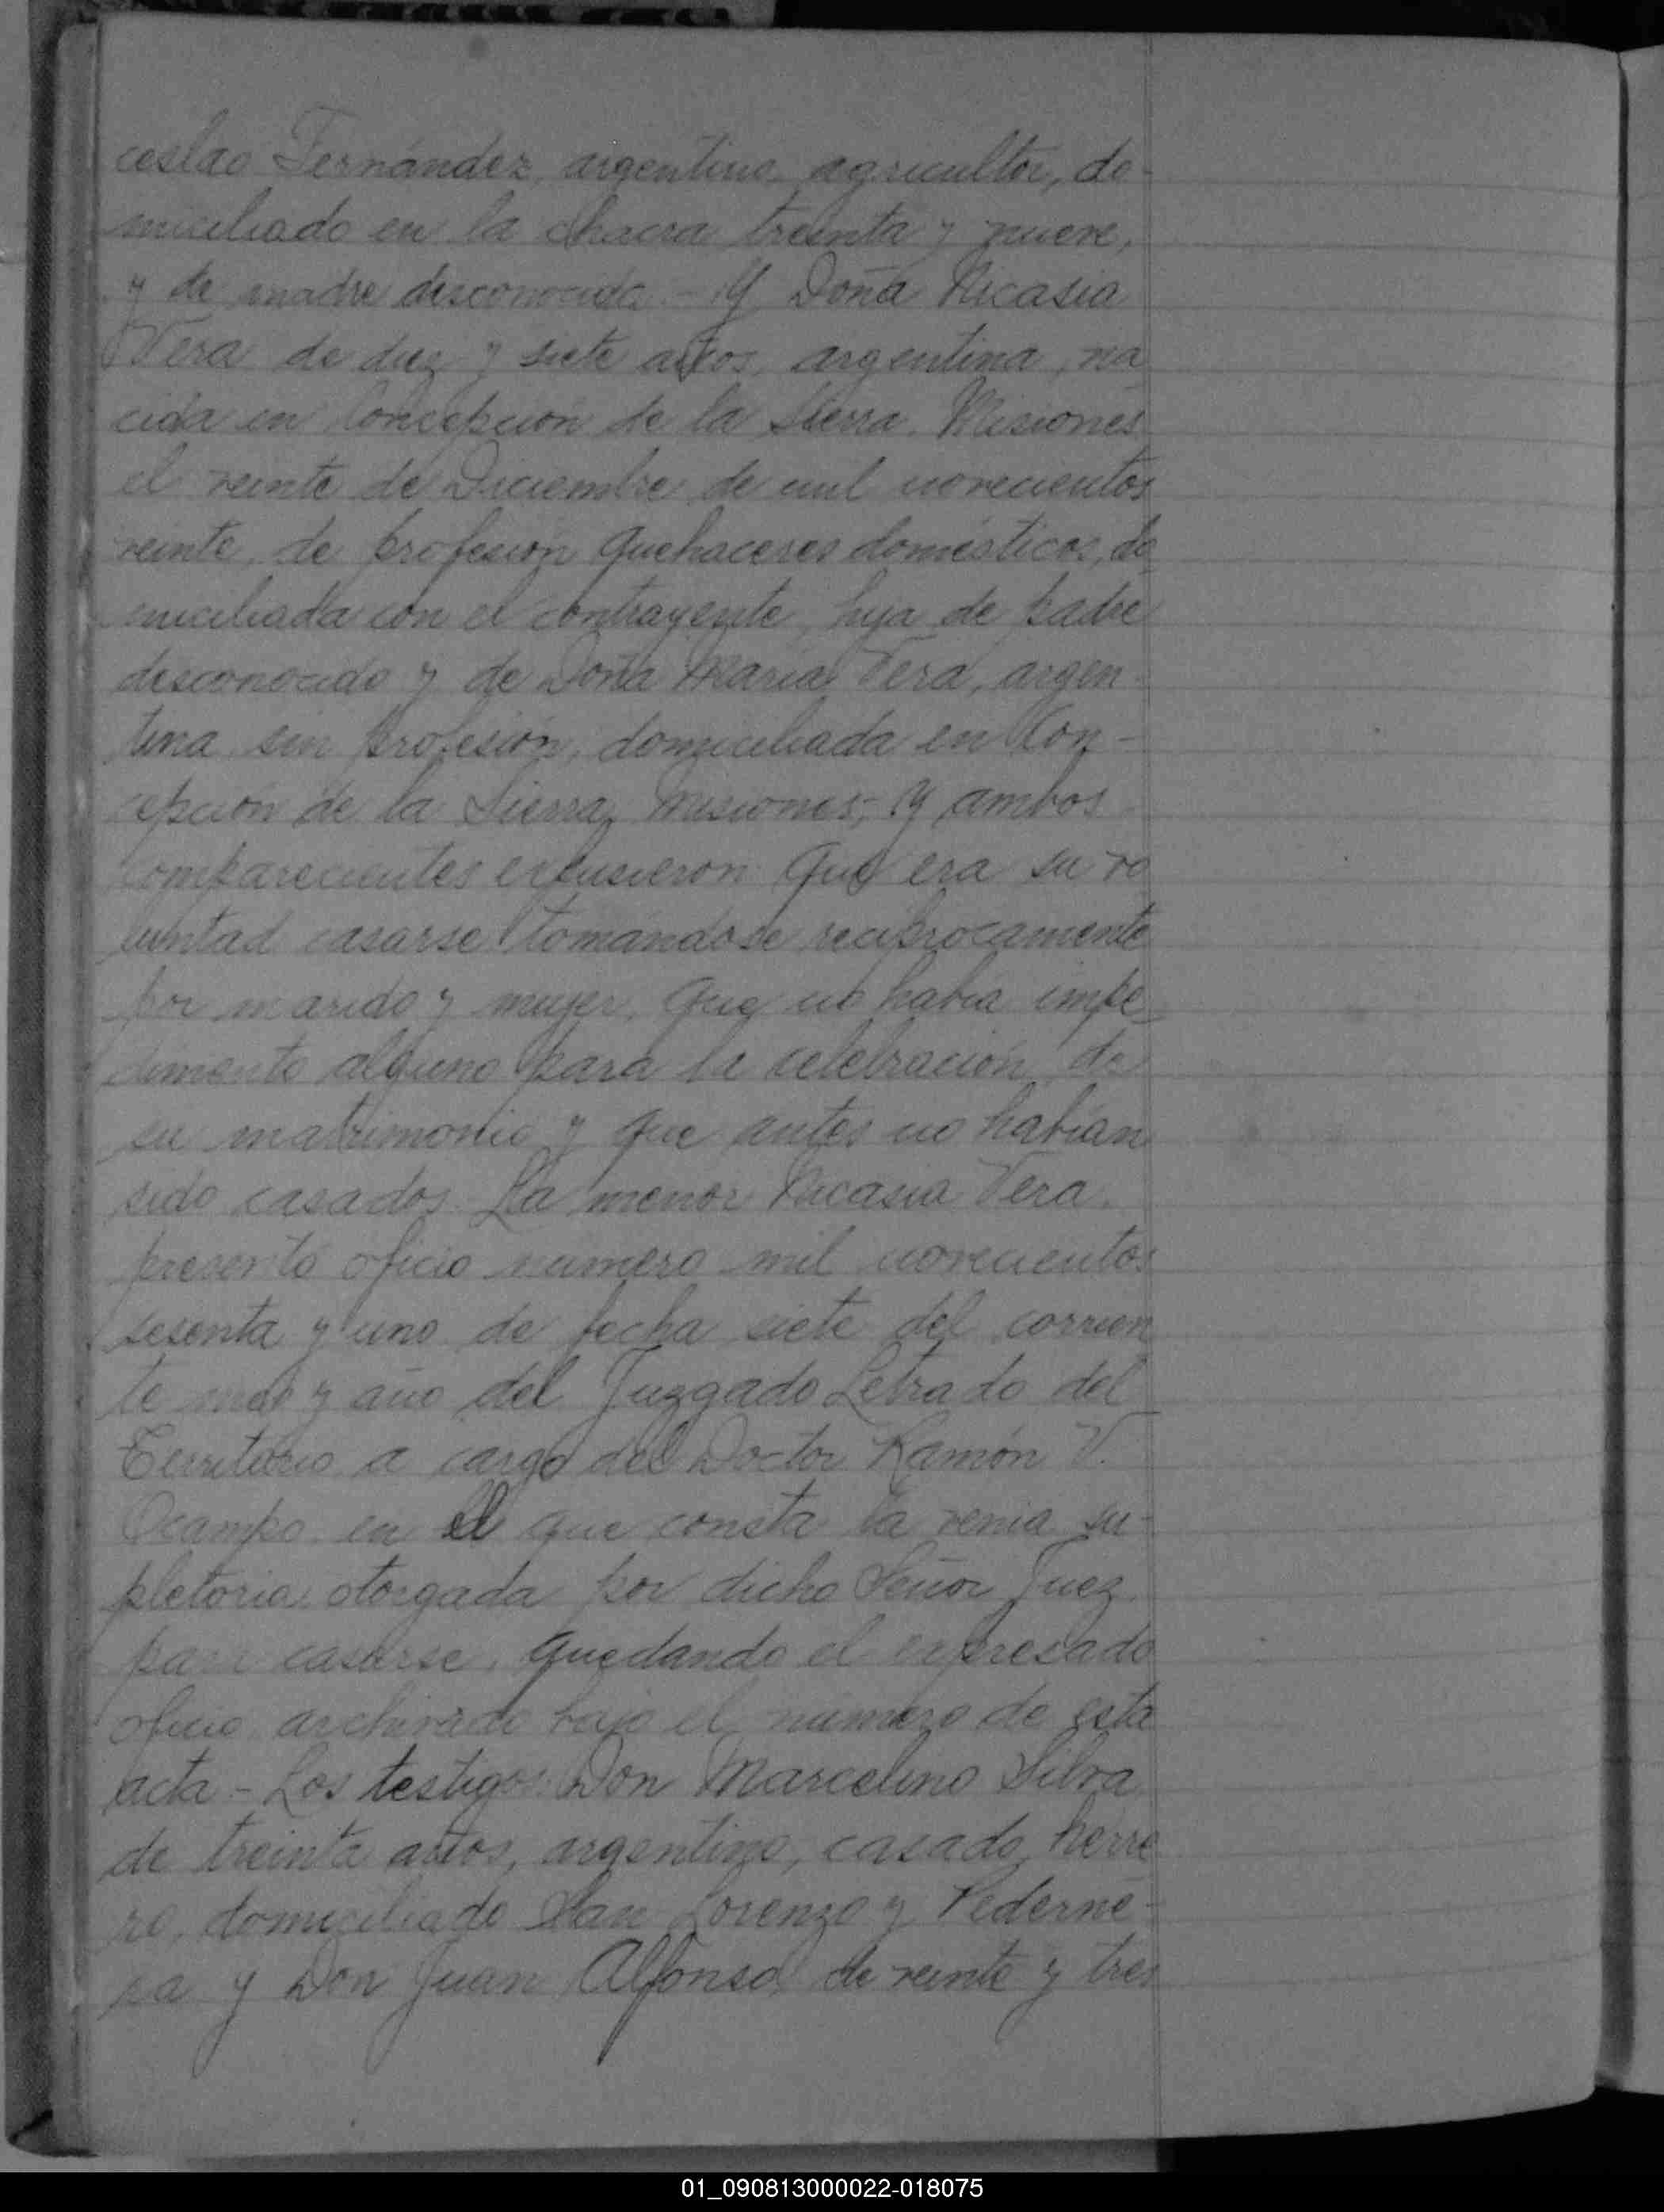 ceslao Fernández, argentino agricultor, do-
miciliado en la chacra treinta y nueve,
y de madre desconocida - Y Doña Nicasia
Vera de diez y siete años, argentina, na
cida en Concepción de la Sierra. Misiones
el veinte de Diciembre de mil novecientos
veinte, de profesión quehaceres domésticos, do
miciliada con el contrayente, hija de padre
desconocido y de Doña María Vera, argen-
tina sin profesión, domiciliada en Con-
cepción de la Sierra, Misiones; Y ambos
comparecientes expusieron que era su vo
luntad casarse tomándose recíprocamente
por marido y mujer, que no había impe
dimento alguno para la celebración de
su matrimonio y que antes no habían
sido casados. La menor Nicasia Vera.
presentó oficio numero mil novecientos
sesenta y uno de fecha siete del corrien
te mes y año del Juzgado Letrado del
Territorio a cargo del Doctor Ramón V.
Ocampo en el que consta la venia su-
pletoria otorgada por dicho Señor Juez
para casarse, quedando el expresado
oficio archivado bajo el número de esta
acta - Los testigos Don Marcelino Silva
de treinta años, argentino, casado, herre
ro, domiciliado San Lorenzo y Pederne-
ra y Don Juan Alfonso de veinte y tres
01_090813000022-018075